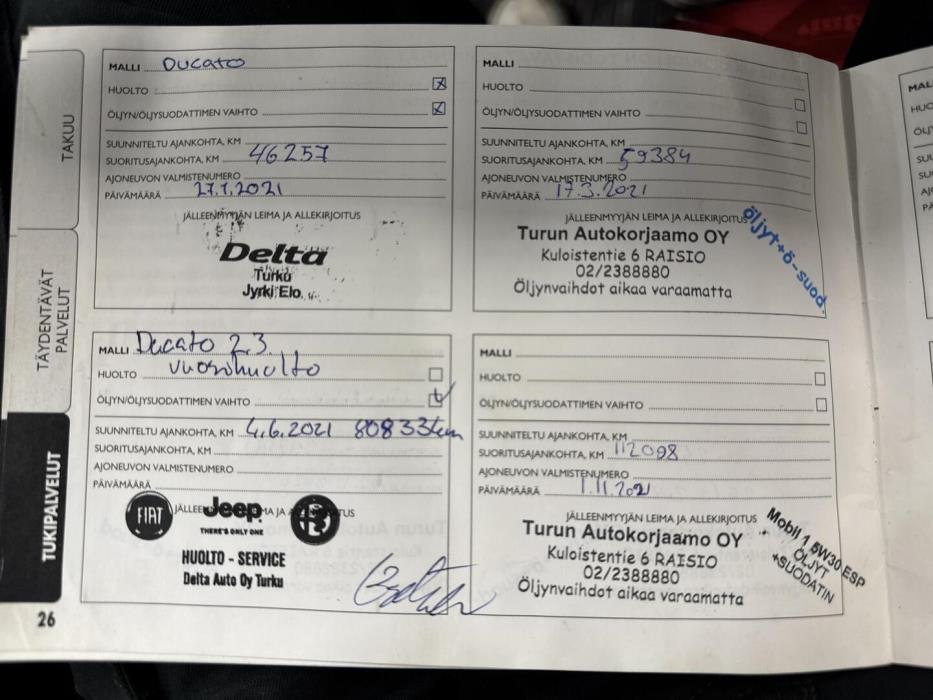 TAKUU
TÄYDENTÄVÄT
PALVELUT
TUKIPALVELUT
26
MALLI Ducato
HUOLTO
ÖLJYN/ÖLJYSUODATTIMEN VAIHTO
SUUNNITELTU AJANKOHTA, KM
SUORITUSAJANKOHTA, KM 46257
AJONEUVON VALMISTENUMERO
PÄIVÄMÄÄRÄ 27.1.2021
JÄLLEENMYYJÄN LEIMA JA ALLEKIRJOITUS
Delta
Turku
Jyrki Elo
MALLI
HUOLTO
ÖLJYN/ÖLJYSUODATTIMEN VAIHTO
SUUNNITELTU AJANKOHTA, KM
SUORITUSAJANKOHTA, KM 59384
AJONEUVON VALMISTENUMERO
PÄIVÄMÄÄRÄ 17.3.2021
JÄLLEENMYYJÄN LEIMA JA ALLEKIRJOITUS
öljyt++ö-suod.
Turun Autokorjaamo OY
Kuloistentie 6 RAISIO
02/2388880
Öljynvaihdot aikaa varaamatta
MALLI Ducato 2.3
HUOLTO vuosihuolto
ÖLJYN/ÖLJYSUODATTIMEN VAIHTO
SUUNNITELTU AJANKOHTA, KM 4.6.2021 80833km
SUORITUSAJANKOHTA, KM
AJONEUVON VALMISTENUMERO
PÄIVÄMÄÄRÄ
FIAT
Jeep
THERE'S ONLY ONE
HUOLTO - SERVICE
Delta Auto Oy Turku
MALLI
HUOLTO
ÖLJYN/ÖLJYSUODATTIMEN VAIHTO
SUUNNITELTU AJANKOHTA, KM
SUORITUSAJANKOHTA, KM 112098
AJONEUVON VALMISTENUMERO
PÄIVÄMÄÄRÄ 1.11.2021
JÄLLEENMYYJÄN LEIMA JA ALLEKIRJOITUS
Turun Autokorjaamo OY
Kuloistentie 6 RAISIO
02/2388880
Öljynvaihdot aikaa varaamatta
Mobil 1 5W30 ESP
ÖLJYT
+SUODATIN